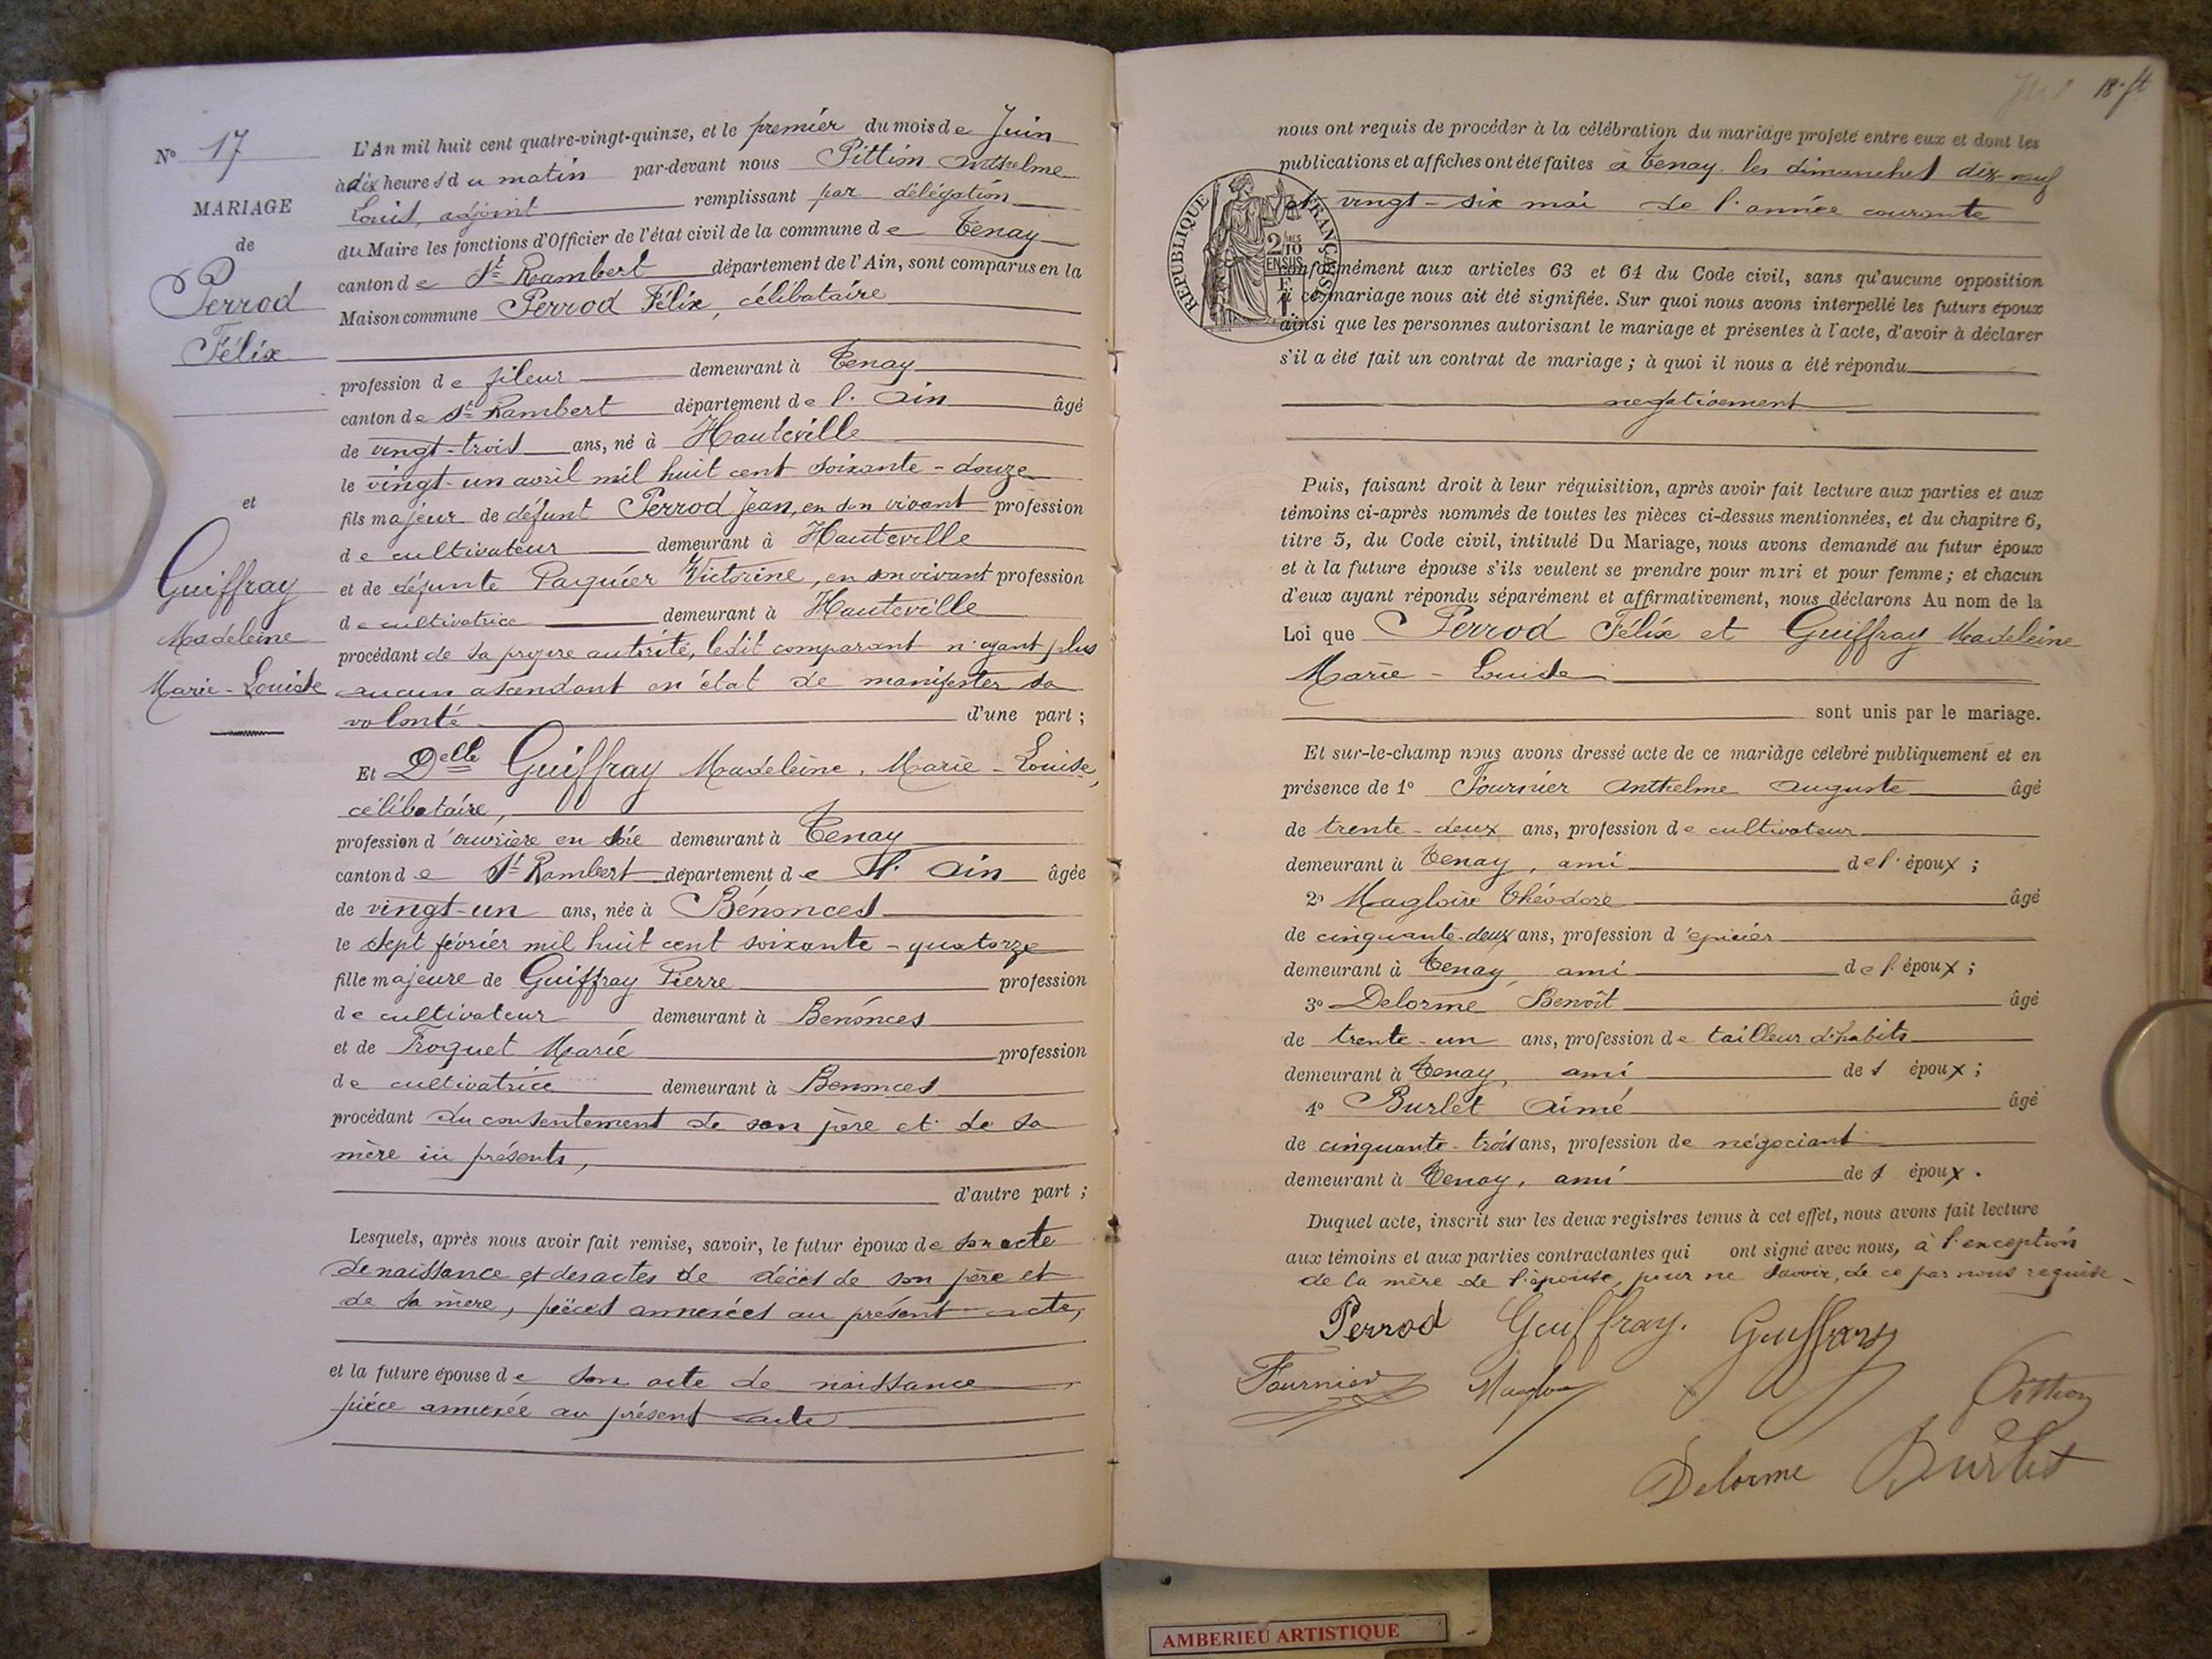 N° 17
MARIAGE
de
Perrod
Félix
et
Guiffray
Madeleine
Marie-Louise
L'An mil huit cent quatre-vingt-quinze, et le premier du mois de Juin
à dix heures du matin par-devant nous Pittion Anthelme
Louis, adjoint remplissant par délégation
du Maire les fonctions d'Officier de l'état civil de la commune de Tenay
canton de St Rambert département de l'Ain, sont comparus en la
Maison commune Perrod Félix, célibataire
profession de fileur demeurant à Tenay
canton de St Rambert département de l'Ain âgé
de vingt-trois ans, né à Hauteville
le vingt-un avril mil huit cent soixante-douze
fils majeur de défunt Perrod Jean, en son vivant profession
de cultivateur demeurant à Hauteville
et de défunte Paquier Victorine, en son vivant profession
de cultivatrice demeurant à Hauteville
procédant de sa propre autorité, ledit comparant n'ayant plus
aucun ascendant en état de manifester sa
volonté d'une part ;
Et Delle Guiffray Madeleine, Marie-Louise,
célibataire,
profession d'ouvrière en soie demeurant à Tenay
canton de St Rambert département de l'Ain âgée
de vingt-un ans, née à Bénonces
le sept février mil huit cent soixante-quatorze
fille majeure de Guiffray Pierre profession
de cultivateur demeurant à Bénonces
et de Troquet Marie profession
de cultivatrice demeurant à Bénonces
procédant du consentement de son père et de sa
mère ici présents,
d'autre part ;
Lesquels, après nous avoir fait remise, savoir, le futur époux de son acte
de naissance et des actes de décès de son père et
de sa mère, pièces annexées au présent acte,
et la future épouse de son acte de naissance
pièce annexée au présent acte
18
nous ont requis de procéder à la célébration du mariage projeté entre eux et dont les
publications et affiches ont été faites à Tenay les dimanches dix-neuf
et vingt-six mai de l'année courante
RÉPUBLIQUE FRANÇAISE
2/10 EN SUS
conformément aux articles 63 et 64 du Code civil, sans qu'aucune opposition
à ce mariage nous ait été signifiée. Sur quoi nous avons interpellé les futurs époux
ainsi que les personnes autorisant le mariage et présentes à l'acte, d'avoir à déclarer
s'il a été fait un contrat de mariage ; à quoi il nous a été répondu
negativement
Puis, faisant droit à leur réquisition, après avoir fait lecture aux parties et aux
témoins ci-après nommés de toutes les pièces ci-dessus mentionnées, et du chapitre 6,
titre 5, du Code civil, intitulé Du Mariage, nous avons demandé au futur époux
et à la future épouse s'ils veulent se prendre pour mari et pour femme ; et chacun
d'eux ayant répondu séparément et affirmativement, nous déclarons Au nom de la
Loi que Perrod Félix et Guiffray Madeleine
Marie-Louise
sont unis par le mariage.
Et sur-le-champ nous avons dressé acte de ce mariage célébré publiquement et en
présence de 1° Fournier Anthelme Auguste âgé
de trente-deux ans, profession de cultivateur
demeurant à Tenay, ami de l'époux ;
2° Magloire Théodore âgé
de cinquante-deux ans, profession d'épicier
demeurant à Tenay, ami de l'époux ;
3° Delorme Benoît âgé
de trente-un ans, profession de tailleur d'habits
demeurant à Tenay, ami des époux ;
4° Burlet Aimé âgé
de cinquante-trois ans, profession de négociant
demeurant à Tenay, ami des époux.
Duquel acte, inscrit sur les deux registres tenus à cet effet, nous avons fait lecture
aux témoins et aux parties contractantes qui ont signé avec nous, à l'exception
de la mère de l'épouse, pour ne savoir, de ce par nous requise
Perrod Guiffray. Guiffray
Fournier Pittion
Delorme Burlet
AMBERIEU ARTISTIQUE